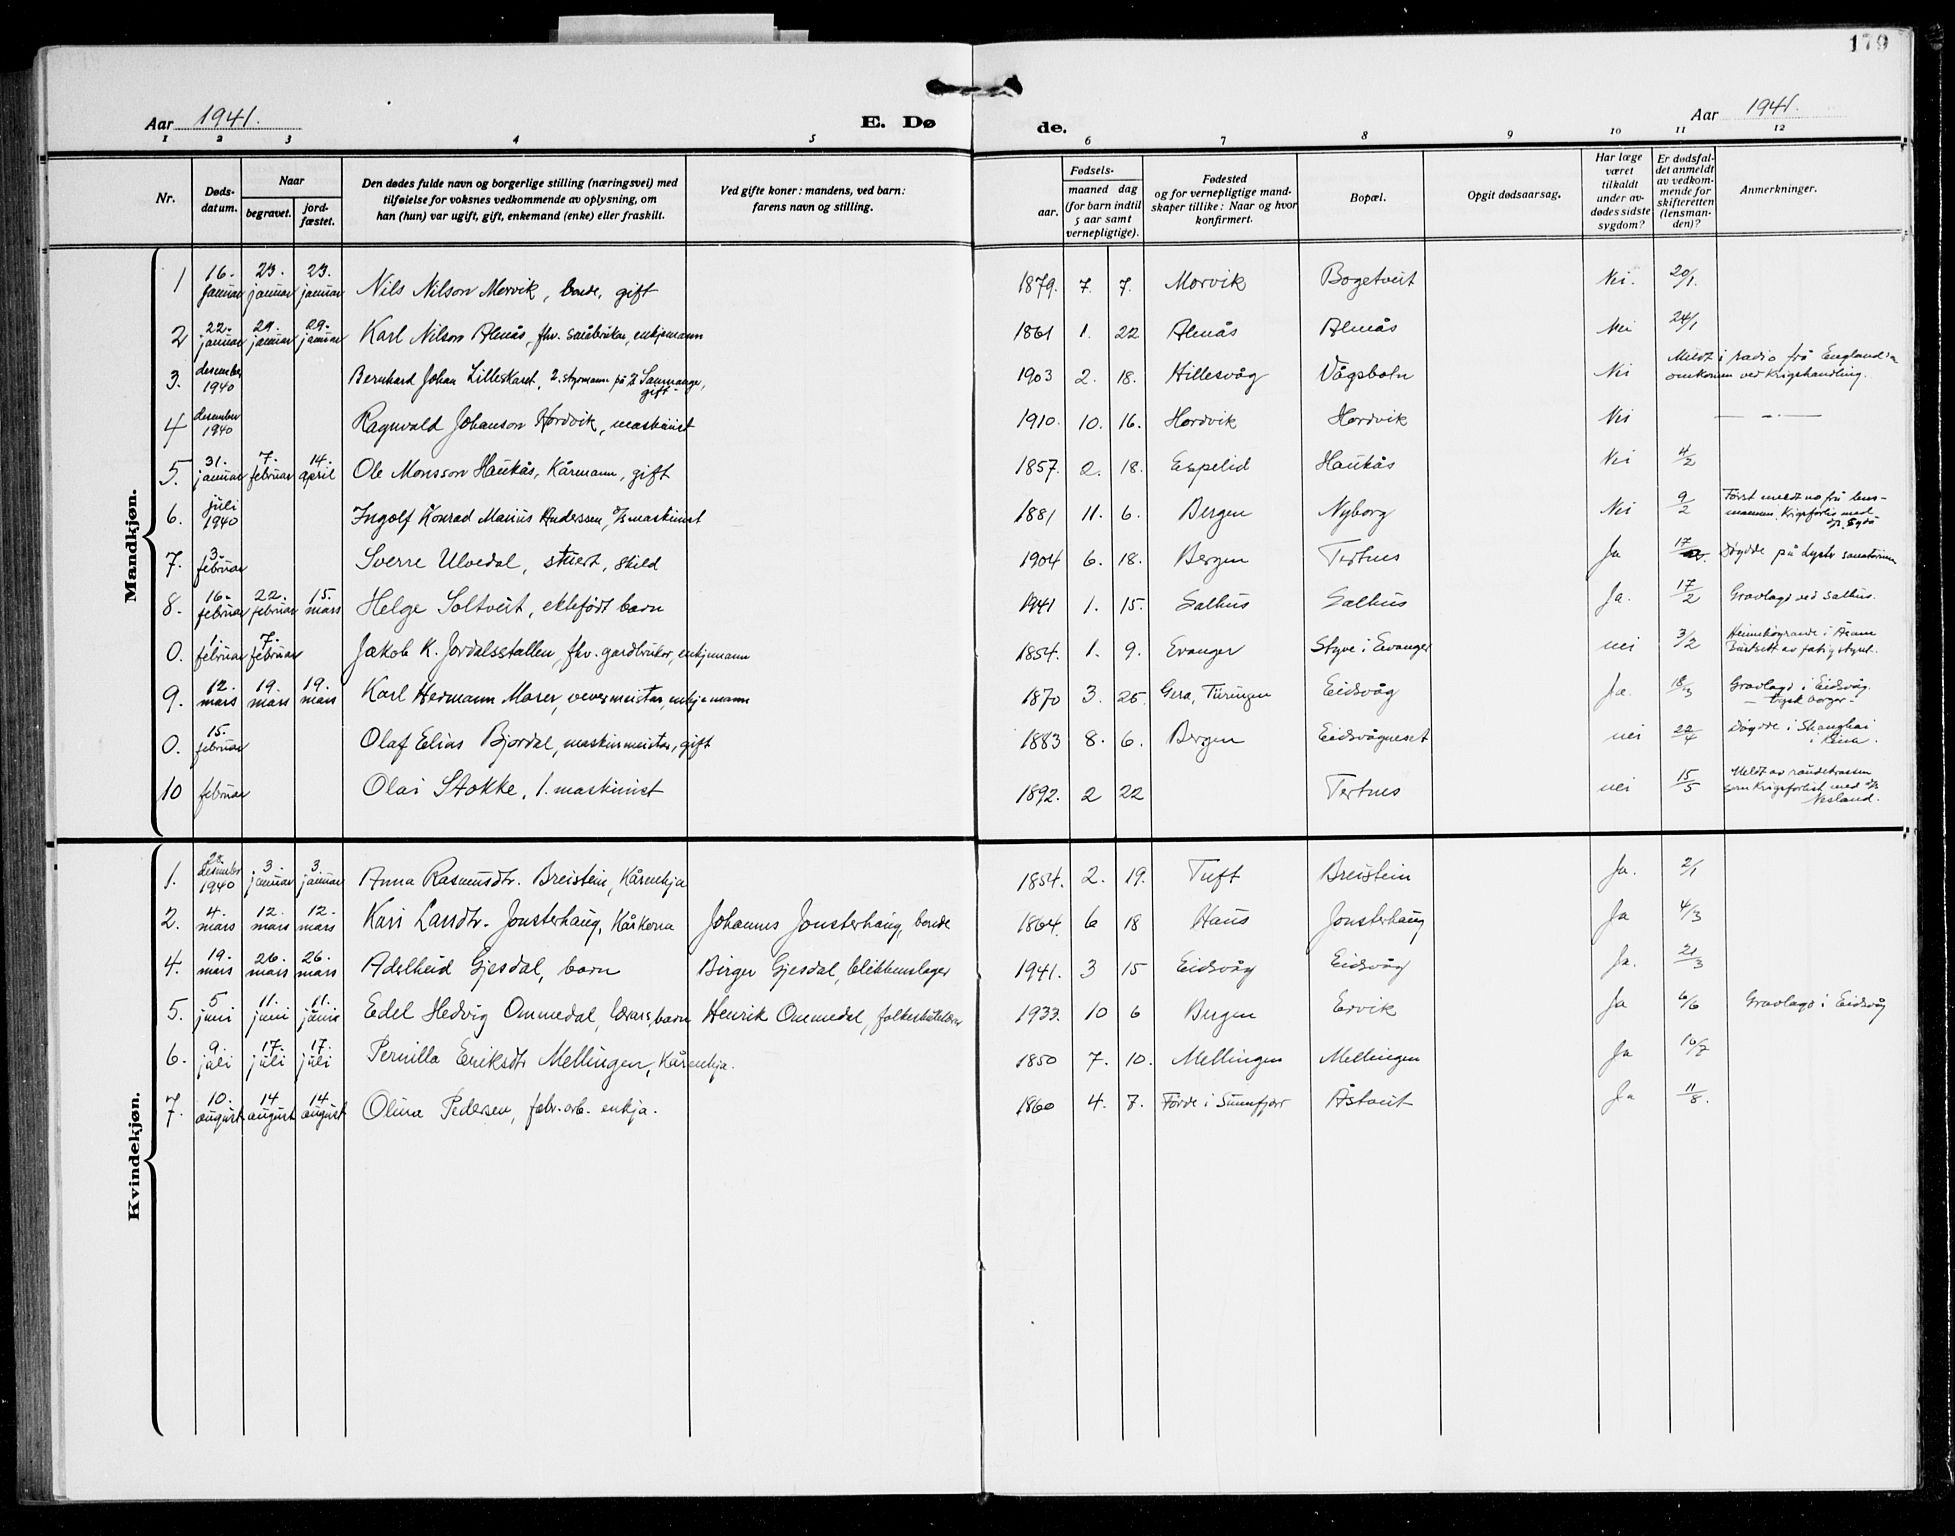 179
Aar 1941.
E. Dø
de.
Aar 1941.
1 2 3 4 5 6 7 8 9 10 11 12
Nr.
Døds-
datum.
Naar
begravet.
jord-
fæstet.
Den dødes fulde navn og borgerlige stilling (næringsvei) med
tilføielse for voksnes vedkommende av oplysning, om
han (hun) var ugift, gift, enkemand (enke) eller fraskilt.
Ved gifte koner: mandens, ved barn:
farens navn og stilling.
Fødsels-
aar.
maaned dag
(for barn indtil
5 aar samt
vernepligtige).
Fødested
og for vernepligtige mand-
skaper tillike: Naar og hvor
konfirmert.
Bopæl.
Opgit dødsaarsag.
Har læge
været
tilkaldt
under av-
dødes sidste
sygdom?
Er dødsfal-
det anmeldt
av vedkom-
mende for
skifteretten
(lensman-
den)?
Anmerkninger.
Mandkjøn.
1 16. januar 23. januar 23. januar Nils Nilson Morvik, bonde, gift 1879. 7. 7. Morvik Bogetveit Nei. 20/1.
2 22. januar 29. januar 29. januar Karl Nilson Almås, fhv. småbruker, enkjemann 1861 1. 22 Almås Almås Nei 24/1
3. desember 1940 Bernhard Johan Lilleskaret, 2. styrmann på Samnanger, gift 1903 2. 18. Hillesvåg Vågsbotn Nei Meldt i radio frå England
omkomen ved Krigshandling.
4 desember 1940 Ragnvald Johanson Hordvik, maskinist 1910. 10. 16. Hordvik Hordvik Nei — " —
5. 31. januar 7. februar 14. april Ole Monsson Haukås, Kårmann, gift 1857. 2. 18. Eppelid Haukås Nei 4/2
6. juli 1940 Ingolf Konrad Marius Anderssen, maskinist 1881 11. 6. Bergen Nyborg Nei 9/2 Først meldt no frå lens-
mannen. Krigsforlis med
7. 3. februar Sverre Ulvedal, stuert, skild 1904 6. 18. Bergen Tertnes Ja 17 Døydde på Lyster sanatorium
8. 16. februar 22. februar 15. mars Helge Soltveit, ektefødt barn 1941 1. 15. Salhus Salhus Ja. 17/2 Gravlagd ved Salhus.
0. 1. februar 7. februar Jakob K. Jordalsstallen, fhv. gardbruker, enkjemann 1854. 1. 9. Evanger Styve i Evanger nei 3/2 Heimehøyrande i
9. 12. mars 19. mars 19. mars Karl Hermann Morer, vevermeister, enkjemann 1870 3. 25. Gera, Türingen Eidsvåg Ja. 18/3 Gravlagd i Eidsvåg.
— tysk borger —
0. 15. februar Olaf Elias Bjordal, maskinmeister, gift 1883 8. 6. Bergen Eidsvågneset nei 22/4 Døydde i Shanghai
i Kina.
10 februar Olai Stokke, 1. maskinist 1892. 2 22 Tertnes nei 15/5 Meldt av
som Krigsforlist med d/s
Nesland.
Kvindekjøn.
1. desember 1940 3. januar 3. januar Anna Rasmusdtr. Breistein, Kårenkja 1854. 2. 19. Tuft Breistein Ja. 2/1
2. 4. mars 12. mars 12. mars Kari Larsdtr. Jonsterhaug, Kårkona Johannes Jonsterhaug, bonde 1864. 6 18 Haus Jonsterhaug Ja 4/3
4. 19. mars 26. mars 26. mars Adelheid Gjesdal, barn Birger Gjesdal, blikkenslager 1941. 3 15 Eidsvåg Eidsvåg Ja. 21/3
5. 5 juni 11. juni 11. juni Edel Hedvig Ommedal, lærars barn Henrik Ommedal, 1933. 10 6 Bergen Ervik Ja 6/6 Gravlagd i Eidsvåg
6. 9. juli 17. juli 17. juli Pernilla Eriksdtr Mellingen, Kårenkja. 1850 7. 10. Mellingen Mellingen Ja 10/7
7. 10. august 14 august 14. august Olina Pedersen, fabr. arb. enkja. 1860 4. 7. Førde i Sunnfjord Åstveit Ja 11/8.